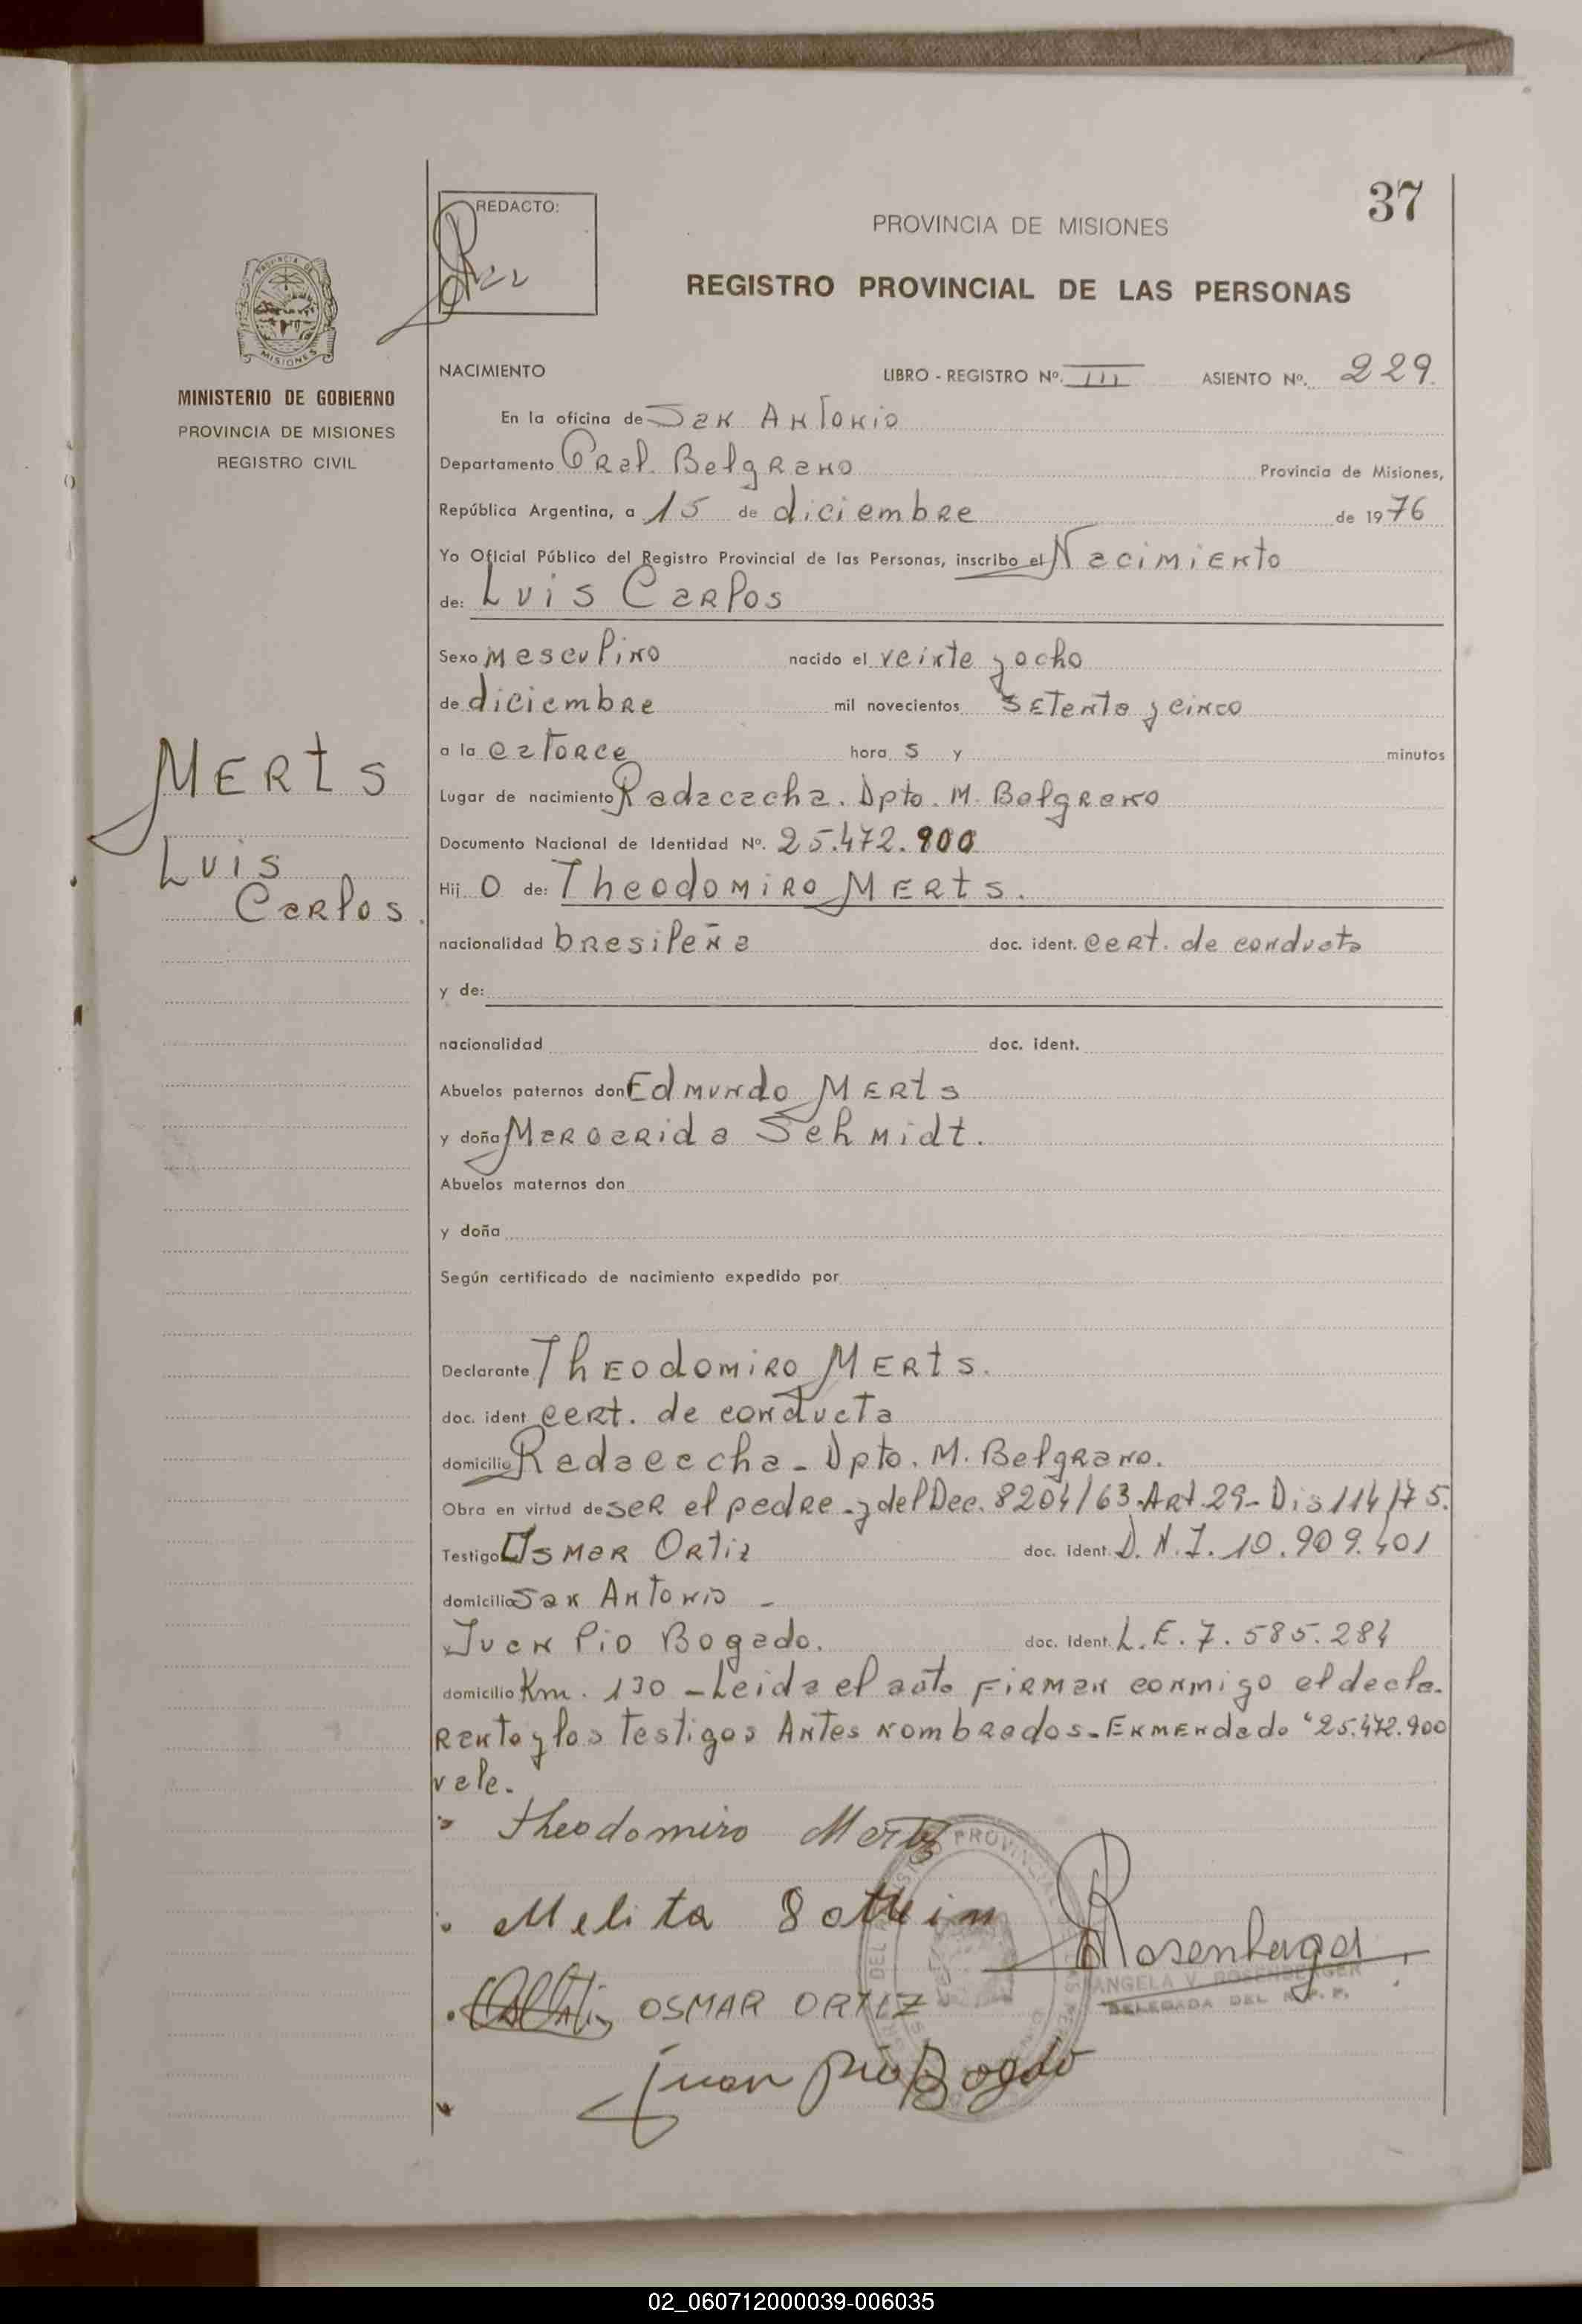 37
REDACTO:
PROVINCIA DE MISIONES
REGISTRO PROVINCIAL DE LAS PERSONAS
PROVINCIA DE
MISIONES
MINISTERIO DE GOBIERNO
PROVINCIA DE MISIONES
REGISTRO CIVIL
NACIMIENTO LIBRO - REGISTRO Nº. III ASIENTO Nº. 229.
En la oficina de San Antonio
Departamento Gral. Belgrano Provincia de Misiones,
República Argentina, a 15 de diciembre de 1976
Yo Oficial Público del Registro Provincial de las Personas, inscribo el Nacimiento
de: Luis Carlos
Sexo masculino nacido el veinte y ocho
de diciembre mil novecientos setenta y cinco
a la catorce hora s y minutos
Merts
Luis
Carlos.
Lugar de nacimiento Radacacha. Dpto. M. Belgrano
Documento Nacional de Identidad Nº. 25.472.900
Hij o de: Theodomiro Merts.
nacionalidad brasileña doc. ident. cert. de conducta
y de:
nacionalidad doc. ident.
Abuelos paternos don Edmundo Merts
y doña Margarida Schmidt.
Abuelos maternos don
y doña
Según certificado de nacimiento expedido por
Declarante Theodomiro Merts.
doc. ident cert. de conducta
domicilio Radacacha - Dpto. M. Belgrano.
Obra en virtud de ser el padre - y del Dec. 8204/63 - Art. 29 - Dis 114/75.
Testigo Osmar Ortiz doc. ident. D.N.I. 10.909.401
domicilio San Antonio -
Juan Pio Bogado. doc. Ident. L.E. 7.585.284
domicilio Km. 130 - Leida el acta firman conmigo el decla-
rante y los testigos Antes nombrados - Enmendado "25.472.900
vale.
Theodomiro Merts
Melita
OSMAR ORTIZ
Juan Pio Bogado
ANGELA V. ROSENBERGER
DELEGADA DEL R. P. P.
02_060712000039-006035